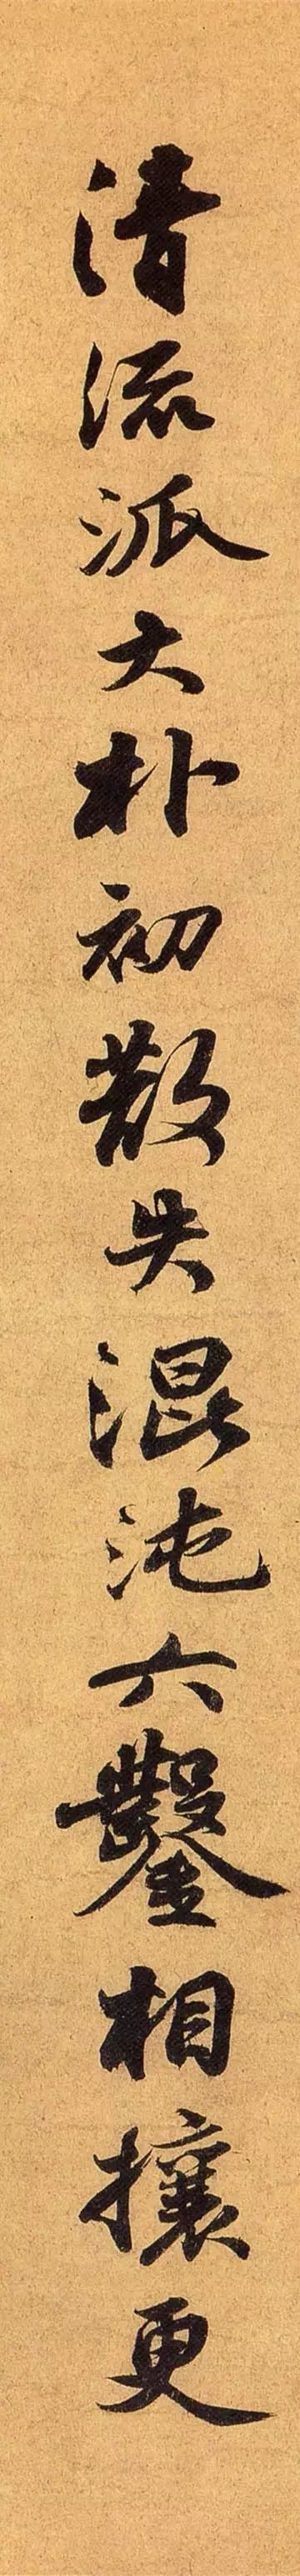 清流派大朴初散失混沌六鑿相攘更